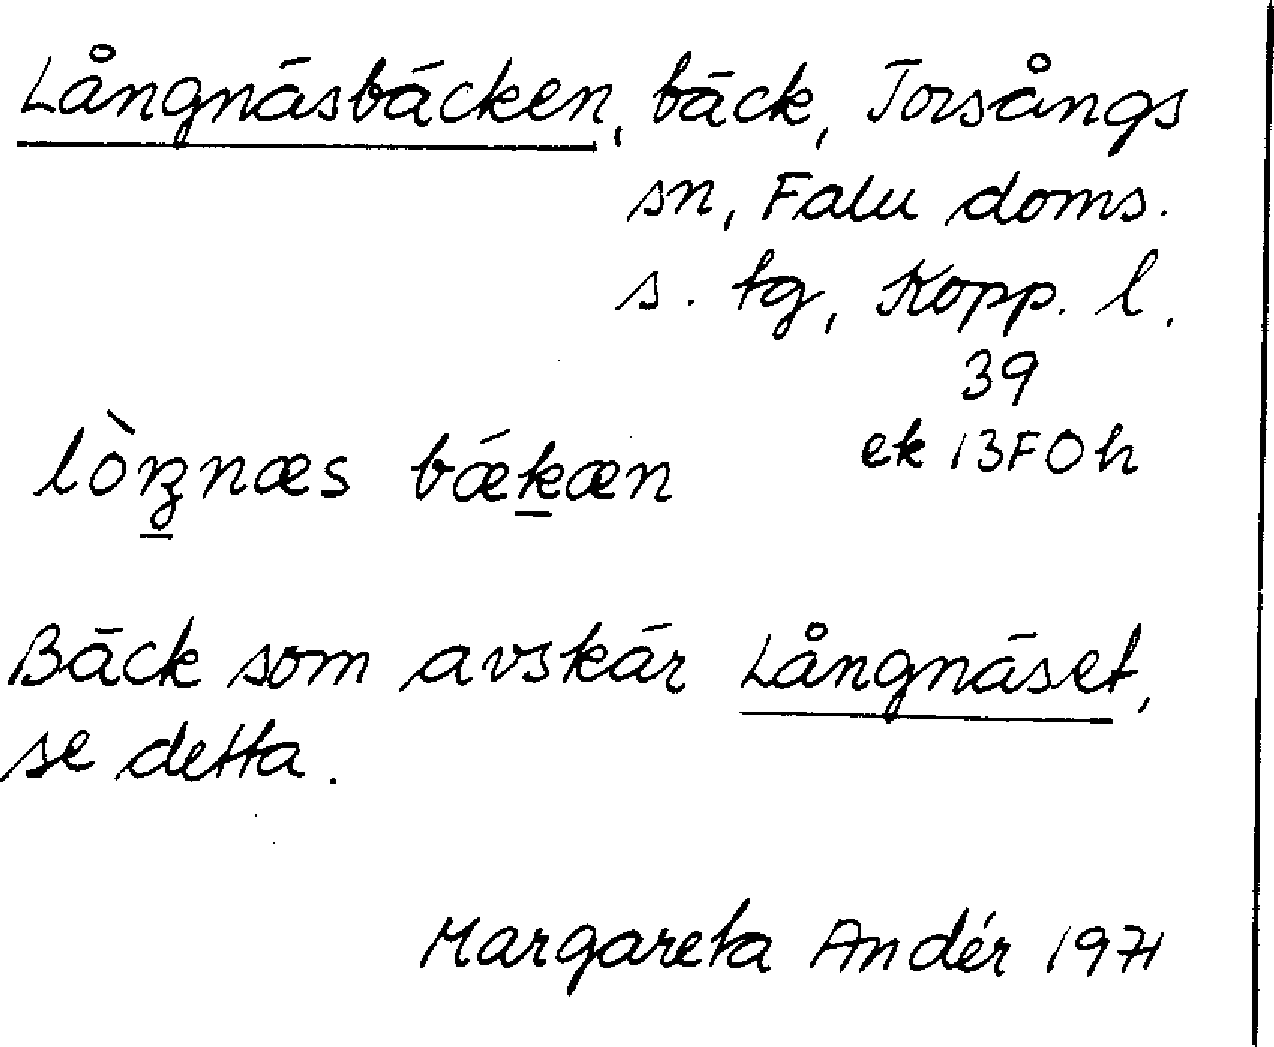 Långnäsbäcken, bäck, Torsångs
sn, Falu doms.
s. tg, Kopp. l.
39
ek 13F0h
lòŋnæs bækæn
Bäck som avskär Långnäset,
se detta.
Margareta Andér 1971